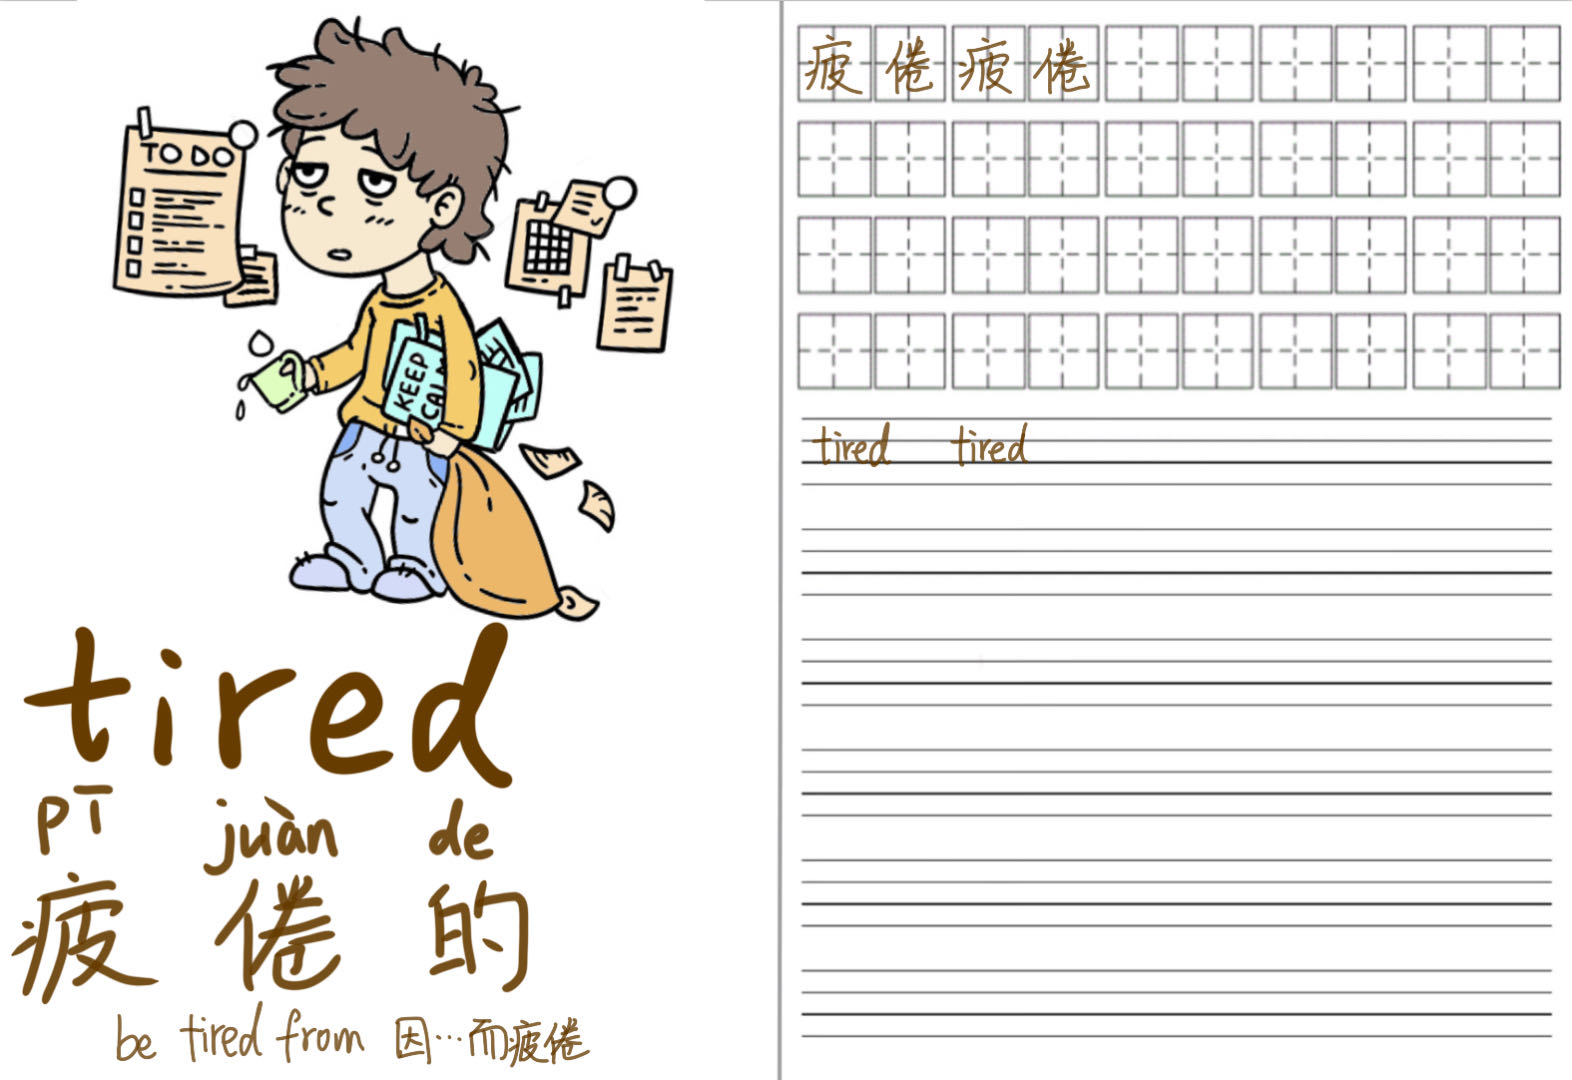 TO DO
KEEP
CALM
tired
pī juàn de
疲倦的
be tired from 因…而疲倦
疲倦疲倦
tired tired